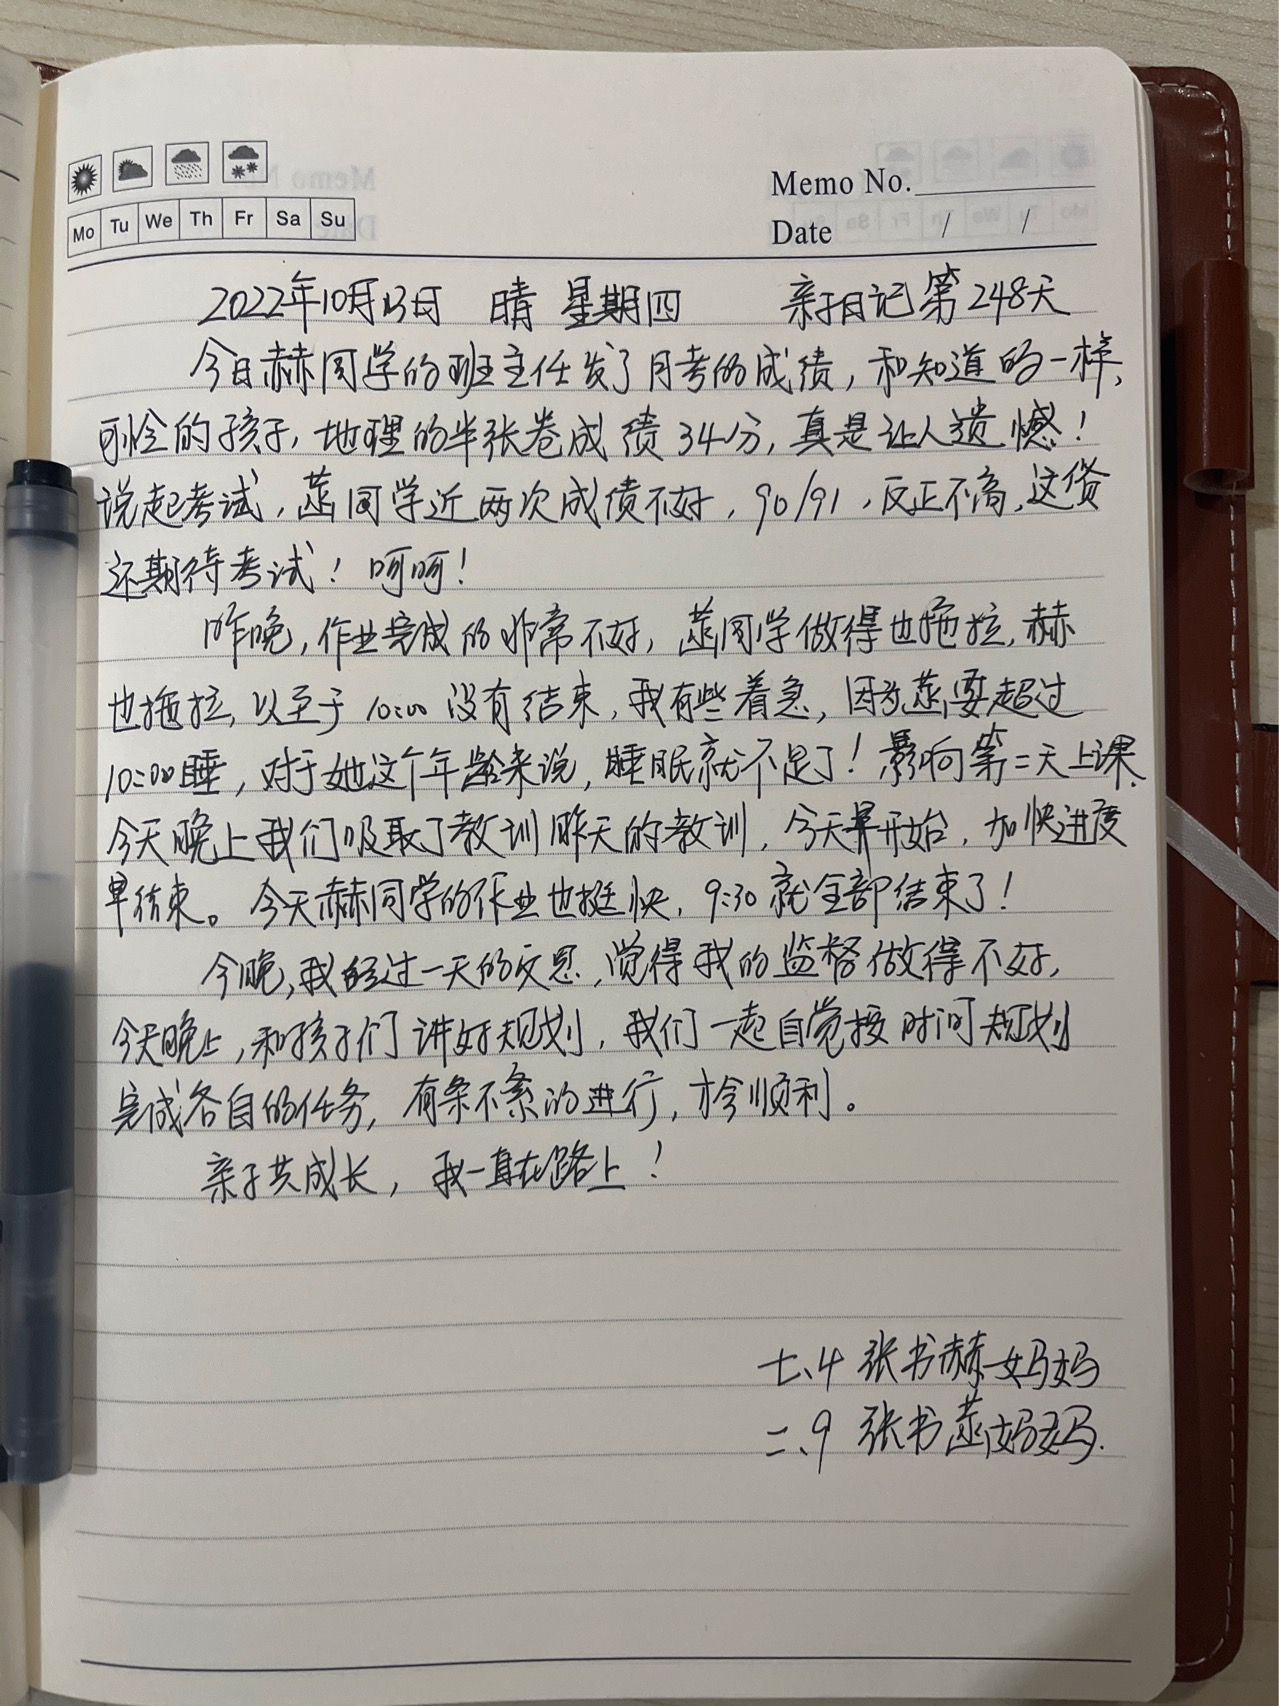 Memo No.
Mo Tu We Th Fr Sa Su
Date / /
2022年10月13日 晴 星期四 亲子日记第248天
今日赫同学的班主任发了月考的成绩，和知道的一样，
可怜的孩子，地理的半张卷成绩34分，真是让人遗憾！
说起考试，菡同学近两次成绩不好，90/91，反正不高，这货
还期待考试！呵呵！
昨晚，作业完成的非常不好，菡同学做得也拖拉，赫
也拖拉，以至于10:00没有结束，我有些着急，因为菡要超过
10:00睡，对于她这个年龄来说，睡眠就不足了！影响第二天上课，
今天晚上我们吸取了教训昨天的教训，今天早开始，加快进度
早结束。今天赫同学的作业也挺快，9:30就全部结束了！
今晚，我经过一天的反思，觉得我的监督做得不好，
今天晚上，和孩子们讲好规划，我们一起自觉按时间规划
完成各自的任务，有条不紊的进行，才会顺利。
亲子共成长，我一直在路上！
七、4 张书赫妈妈
二、9 张书菡妈妈.